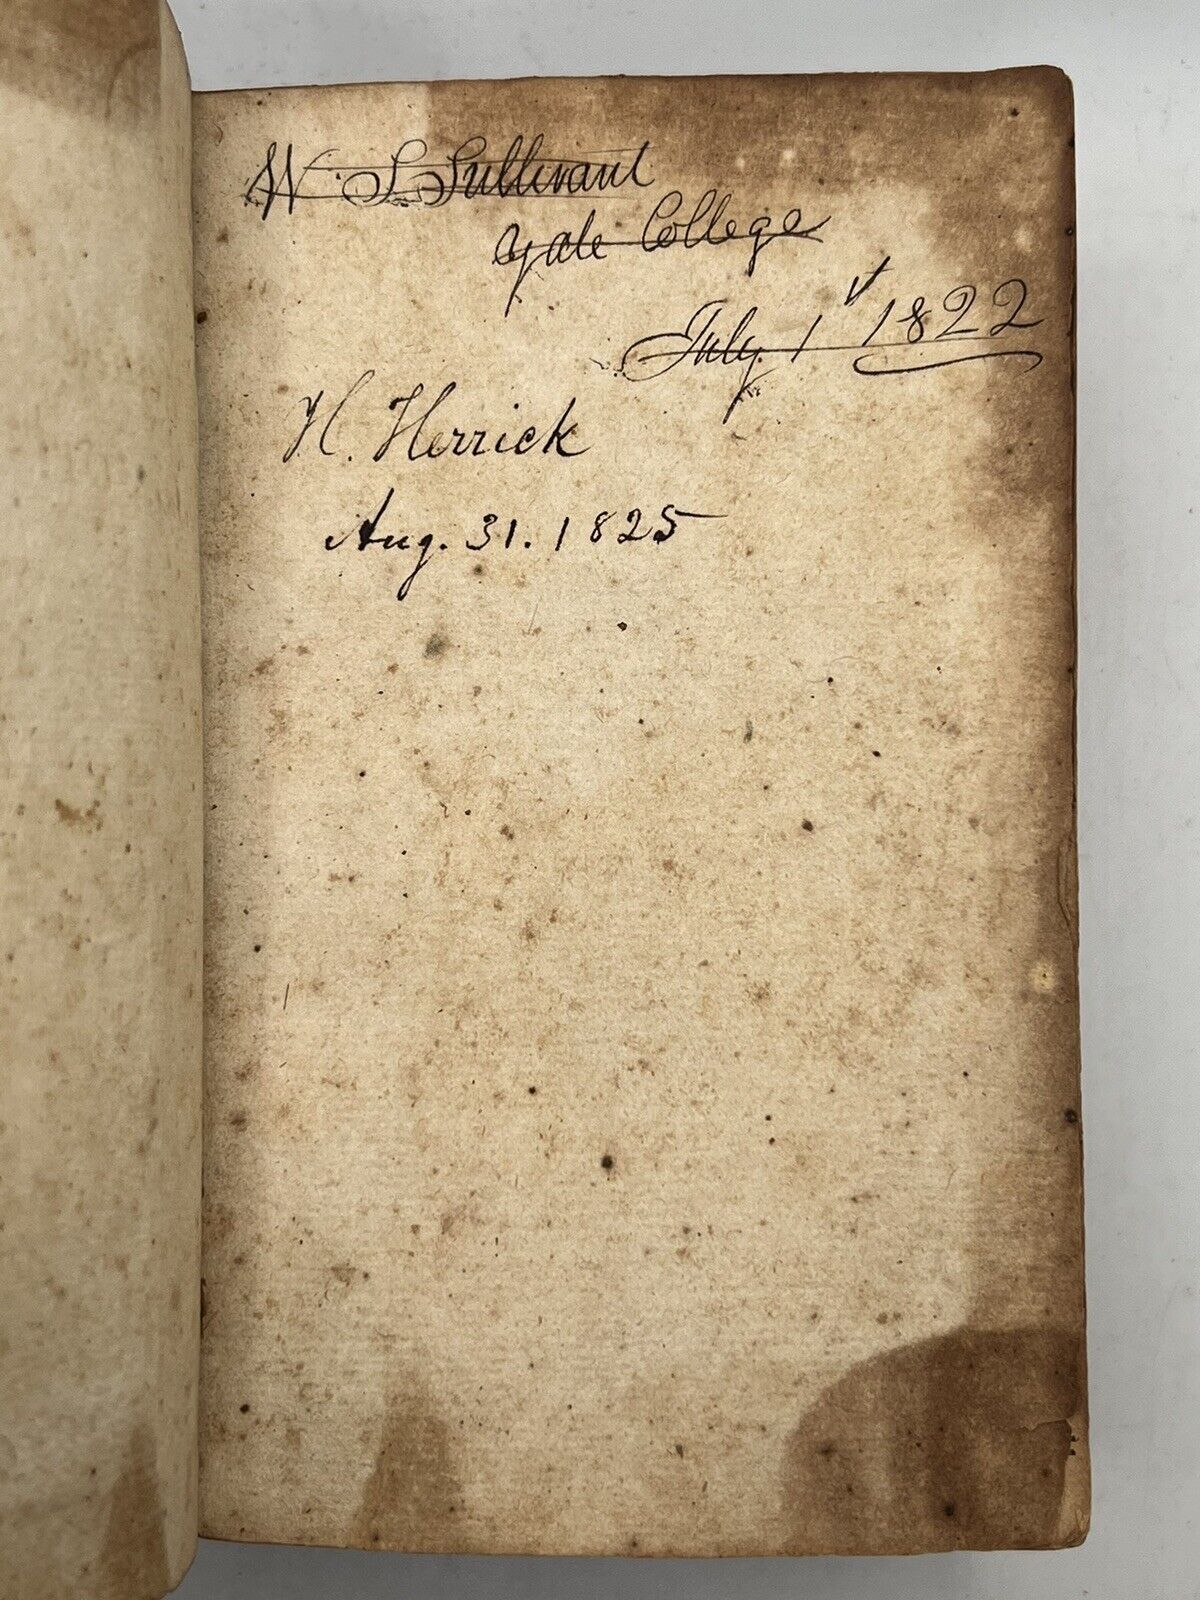 W. S. Sullivant
Yale College
July. 1st 1822
H. Herrick
Aug. 31. 1825